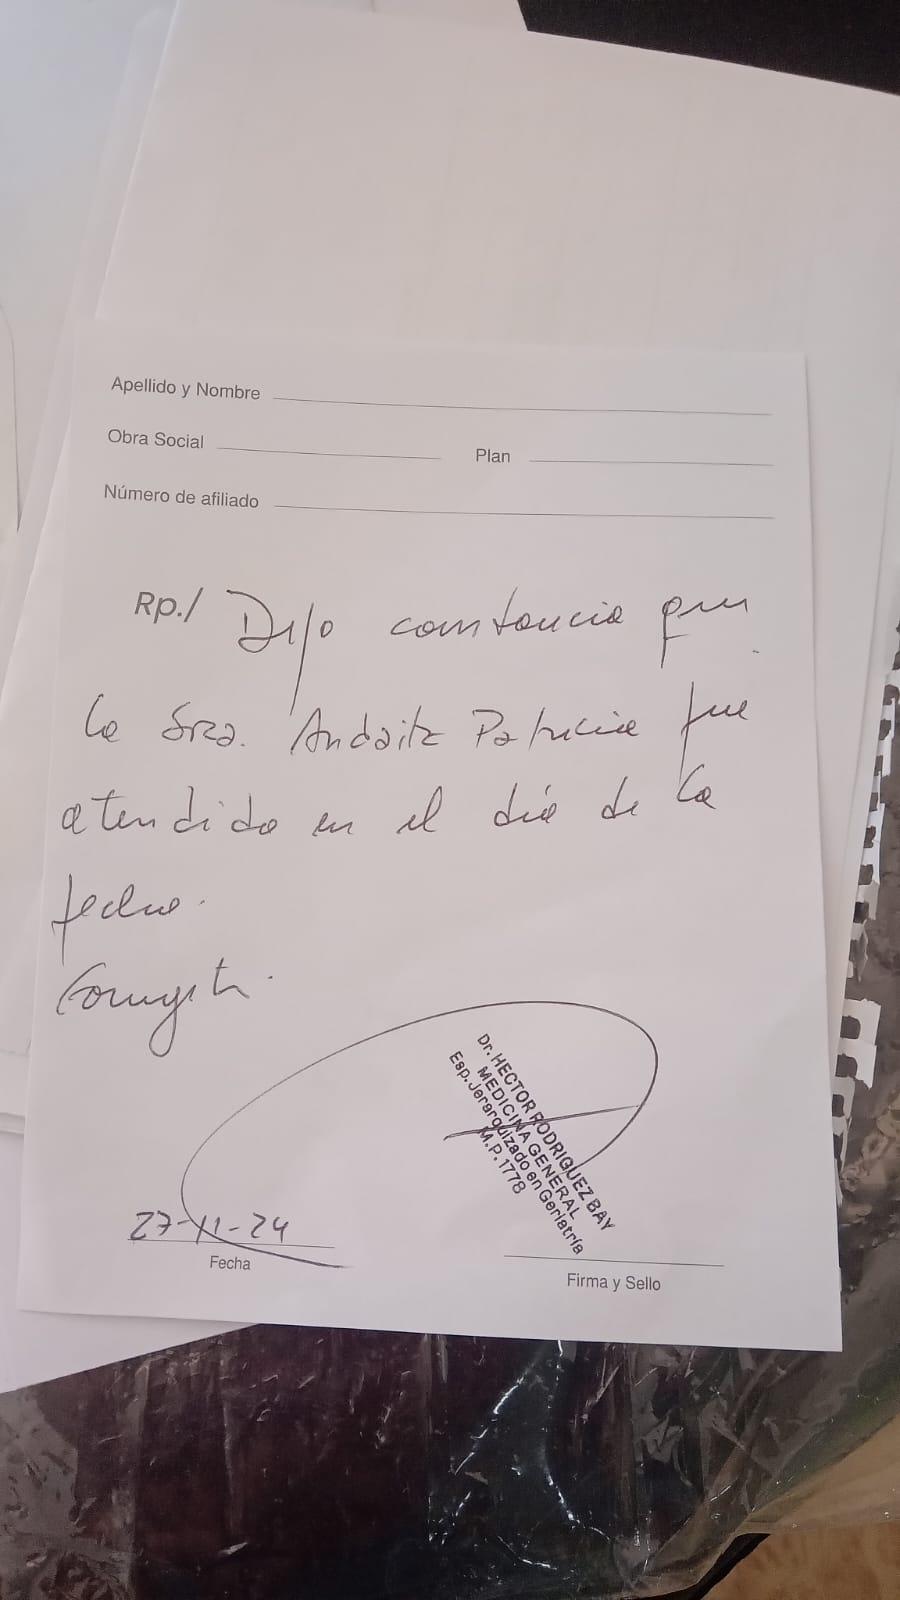 Apellido y Nombre
Obra Social Plan
Número de afiliado
Rp./ Dejo constancia que
la Sra. Patricia fue
atendida en el día de la
fecha.
27-11-24
Fecha
Dr. HECTOR RODRIGUEZ BAY
MEDICINA GENERAL
Esp. Jerarquizado en Geriatría
M.P. 1778
Firma y Sello